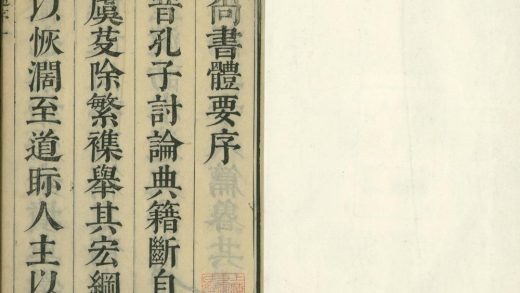 尚書體要序
昔孔子討論典籍斷自
虞芟除繁襍舉其宏綱
以恢濶至道眎人主以